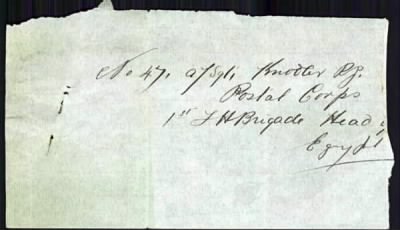 No 47, a/Sgt, Knotler P.J.
Postal Corps
1st L H Brigade Head
Egypt